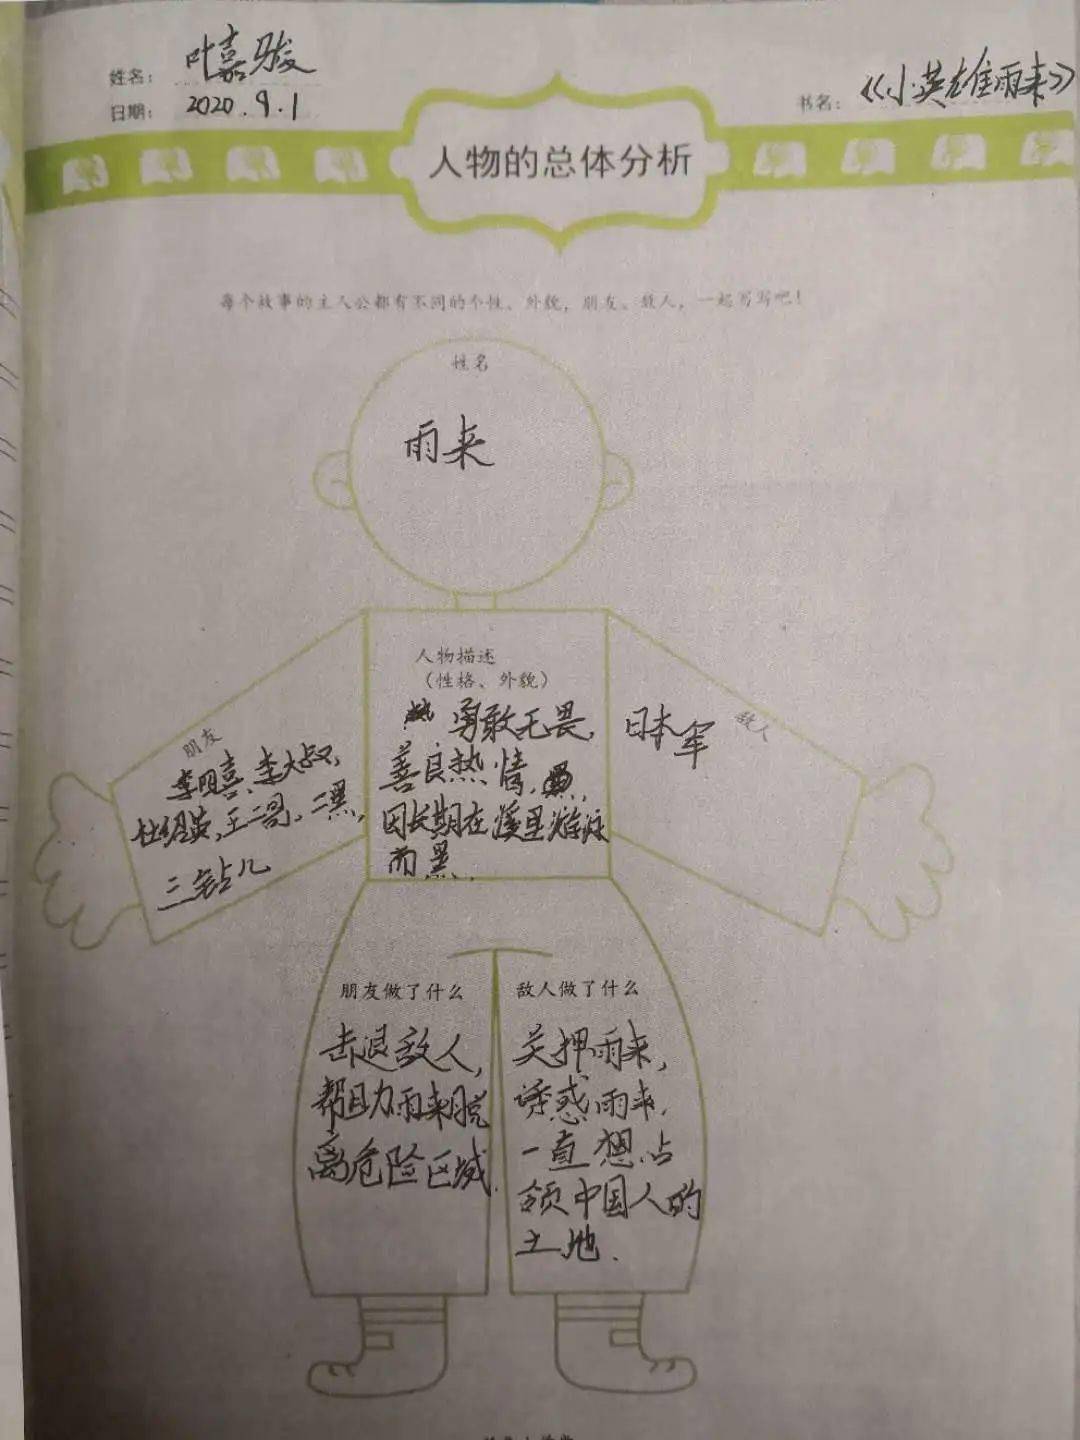 姓名： 叶嘉骏
日期： 2020.9.1
书名： 《小英雄雨来》
人物的总体分析
每个故事的主人公都有不同的个性、外貌，朋友、敌人，一起写写吧！
姓名
雨来
人物描述
（性格、外貌）
勇敢无畏，
善良热情，
因长期在溪里游泳
而黑.
朋友
李明喜、李大叔，
杜绍英，王二哥，二黑，
三钻儿
敌人
日本军
朋友做了什么
击退敌人，
帮助雨来脱
离危险区域.
敌人做了什么
关押雨来，
诱惑雨来，
一直想占
领中国人的
土地.